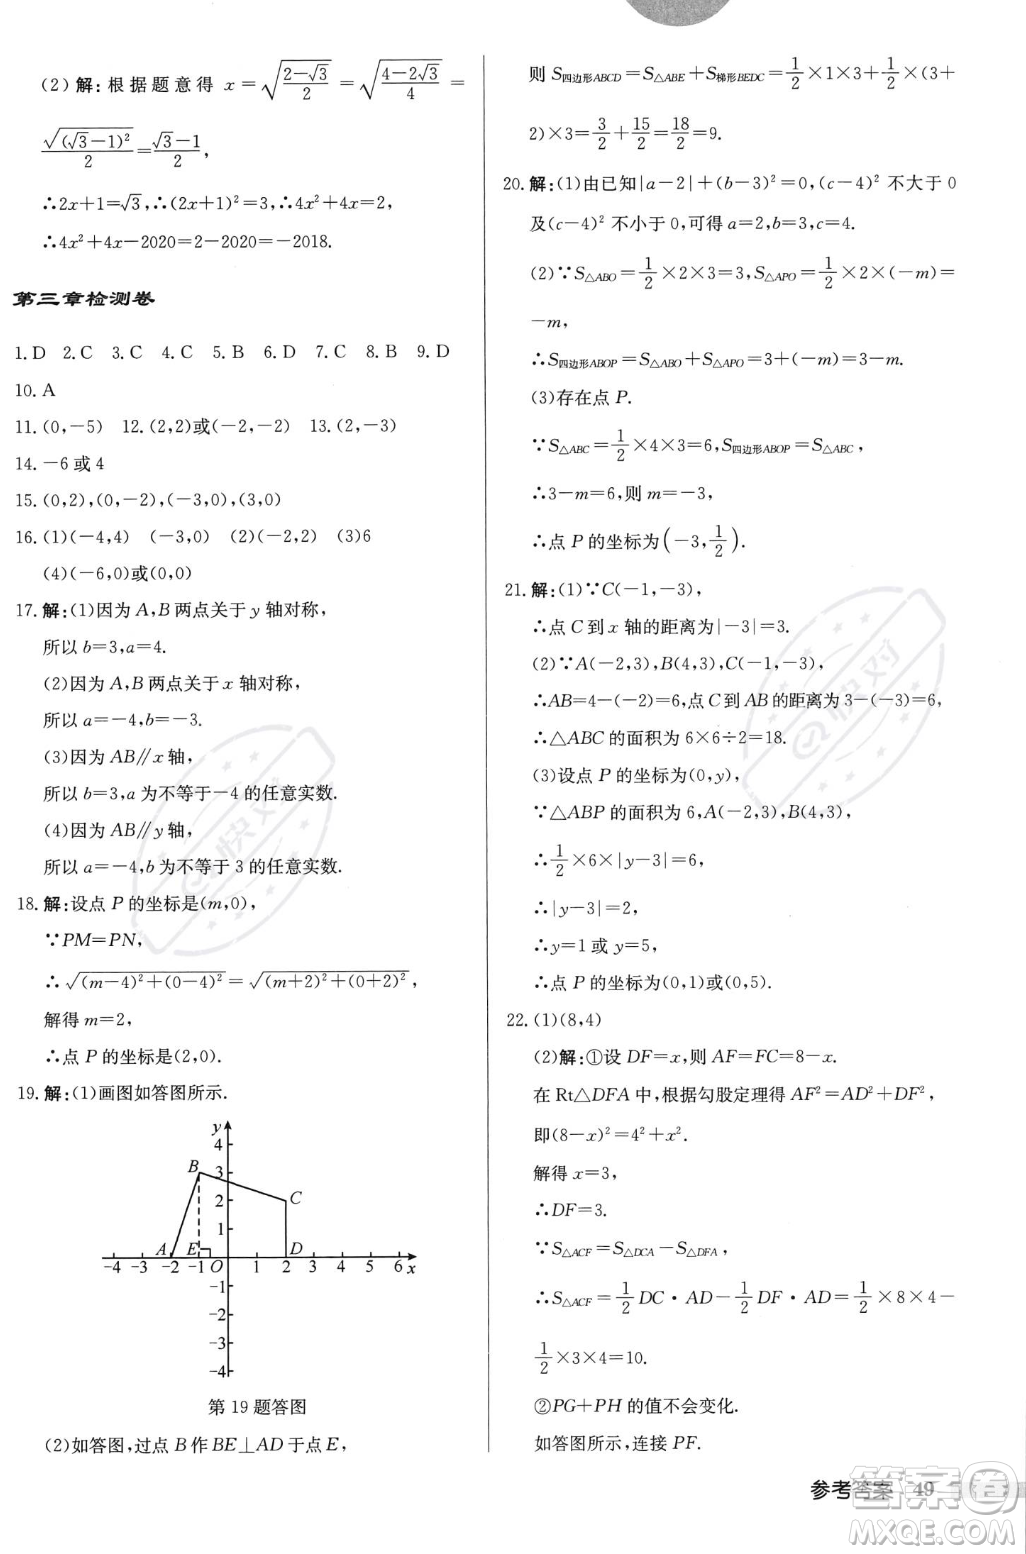 (2)解:根据题意得 x=√((2-√3)/2)=√((4-2√3)/4)=
√((√3-1)²)/2=(√3-1)/2,
∴2x+1=√3,∴(2x+1)²=3,∴4x²+4x=2,
∴4x²+4x-2020=2-2020=-2018.
第三章检测卷
1.D 2.C 3.C 4.C 5.B 6.D 7.C 8.B 9.D
10.A
11.(0,-5) 12.(2,2)或(-2,-2) 13.(2,-3)
14.-6或4
15.(0,2),(0,-2),(-3,0),(3,0)
16.(1)(-4,4) (-3,0) (2)(-2,2) (3)6
(4)(-6,0)或(0,0)
17.解:(1)因为A,B两点关于y轴对称,
所以b=3,a=4.
(2)因为A,B两点关于x轴对称,
所以a=-4,b=-3.
(3)因为AB∥x轴,
所以b=3,a为不等于-4的任意实数.
(4)因为AB∥y轴,
所以a=-4,b为不等于3的任意实数.
18.解:设点P的坐标是(m,0),
∵PM=PN,
∴√((m-4)²+(0-4)²)=√((m+2)²+(0+2)²),
解得m=2,
∴点P的坐标是(2,0).
19.解:(1)画图如答图所示.
y
4
B 3
2 C
1
A E D
-4 -3 -2 -1 O 1 2 3 4 5 6 x
-1
-2
-3
-4
第19题答图
(2)如答图,过点B作BE⊥AD于点E,
则S四边形ABCD=S△ABE+S梯形BEDC=1/2×1×3+1/2×(3+
2)×3=3/2+15/2=18/2=9.
20.解:(1)由已知|a-2|+(b-3)²=0,(c-4)²不大于0
及(c-4)²不小于0,可得a=2,b=3,c=4.
(2)∵S△ABO=1/2×2×3=3,S△APO=1/2×2×(-m)=
-m,
∴S四边形ABOP=S△ABO+S△APO=3+(-m)=3-m.
(3)存在点P.
∵S△ABC=1/2×4×3=6,S四边形ABOP=S△ABC,
∴3-m=6,则m=-3,
∴点P的坐标为(-3,1/2).
21.解:(1)∵C(-1,-3),
∴点C到x轴的距离为|-3|=3.
(2)∵A(-2,3),B(4,3),C(-1,-3),
∴AB=4-(-2)=6,点C到AB的距离为3-(-3)=6,
∴△ABC的面积为6×6÷2=18.
(3)设点P的坐标为(0,y),
∵△ABP的面积为6,A(-2,3),B(4,3),
∴1/2×6×|y-3|=6,
∴|y-3|=2,
∴y=1或y=5,
∴点P的坐标为(0,1)或(0,5).
22.(1)(8,4)
(2)解:①设DF=x,则AF=FC=8-x.
在Rt△DFA中,根据勾股定理得AF²=AD²+DF²,
即(8-x)²=4²+x².
解得x=3,
∴DF=3.
∵S△ACF=S△DCA-S△DFA,
∴S△ACF=1/2DC·AD-1/2DF·AD=1/2×8×4-
1/2×3×4=10.
②PG+PH的值不会变化.
如答图所示,连接PF.
参考答案 49
答案卷
MXQE.COM
快对
快对